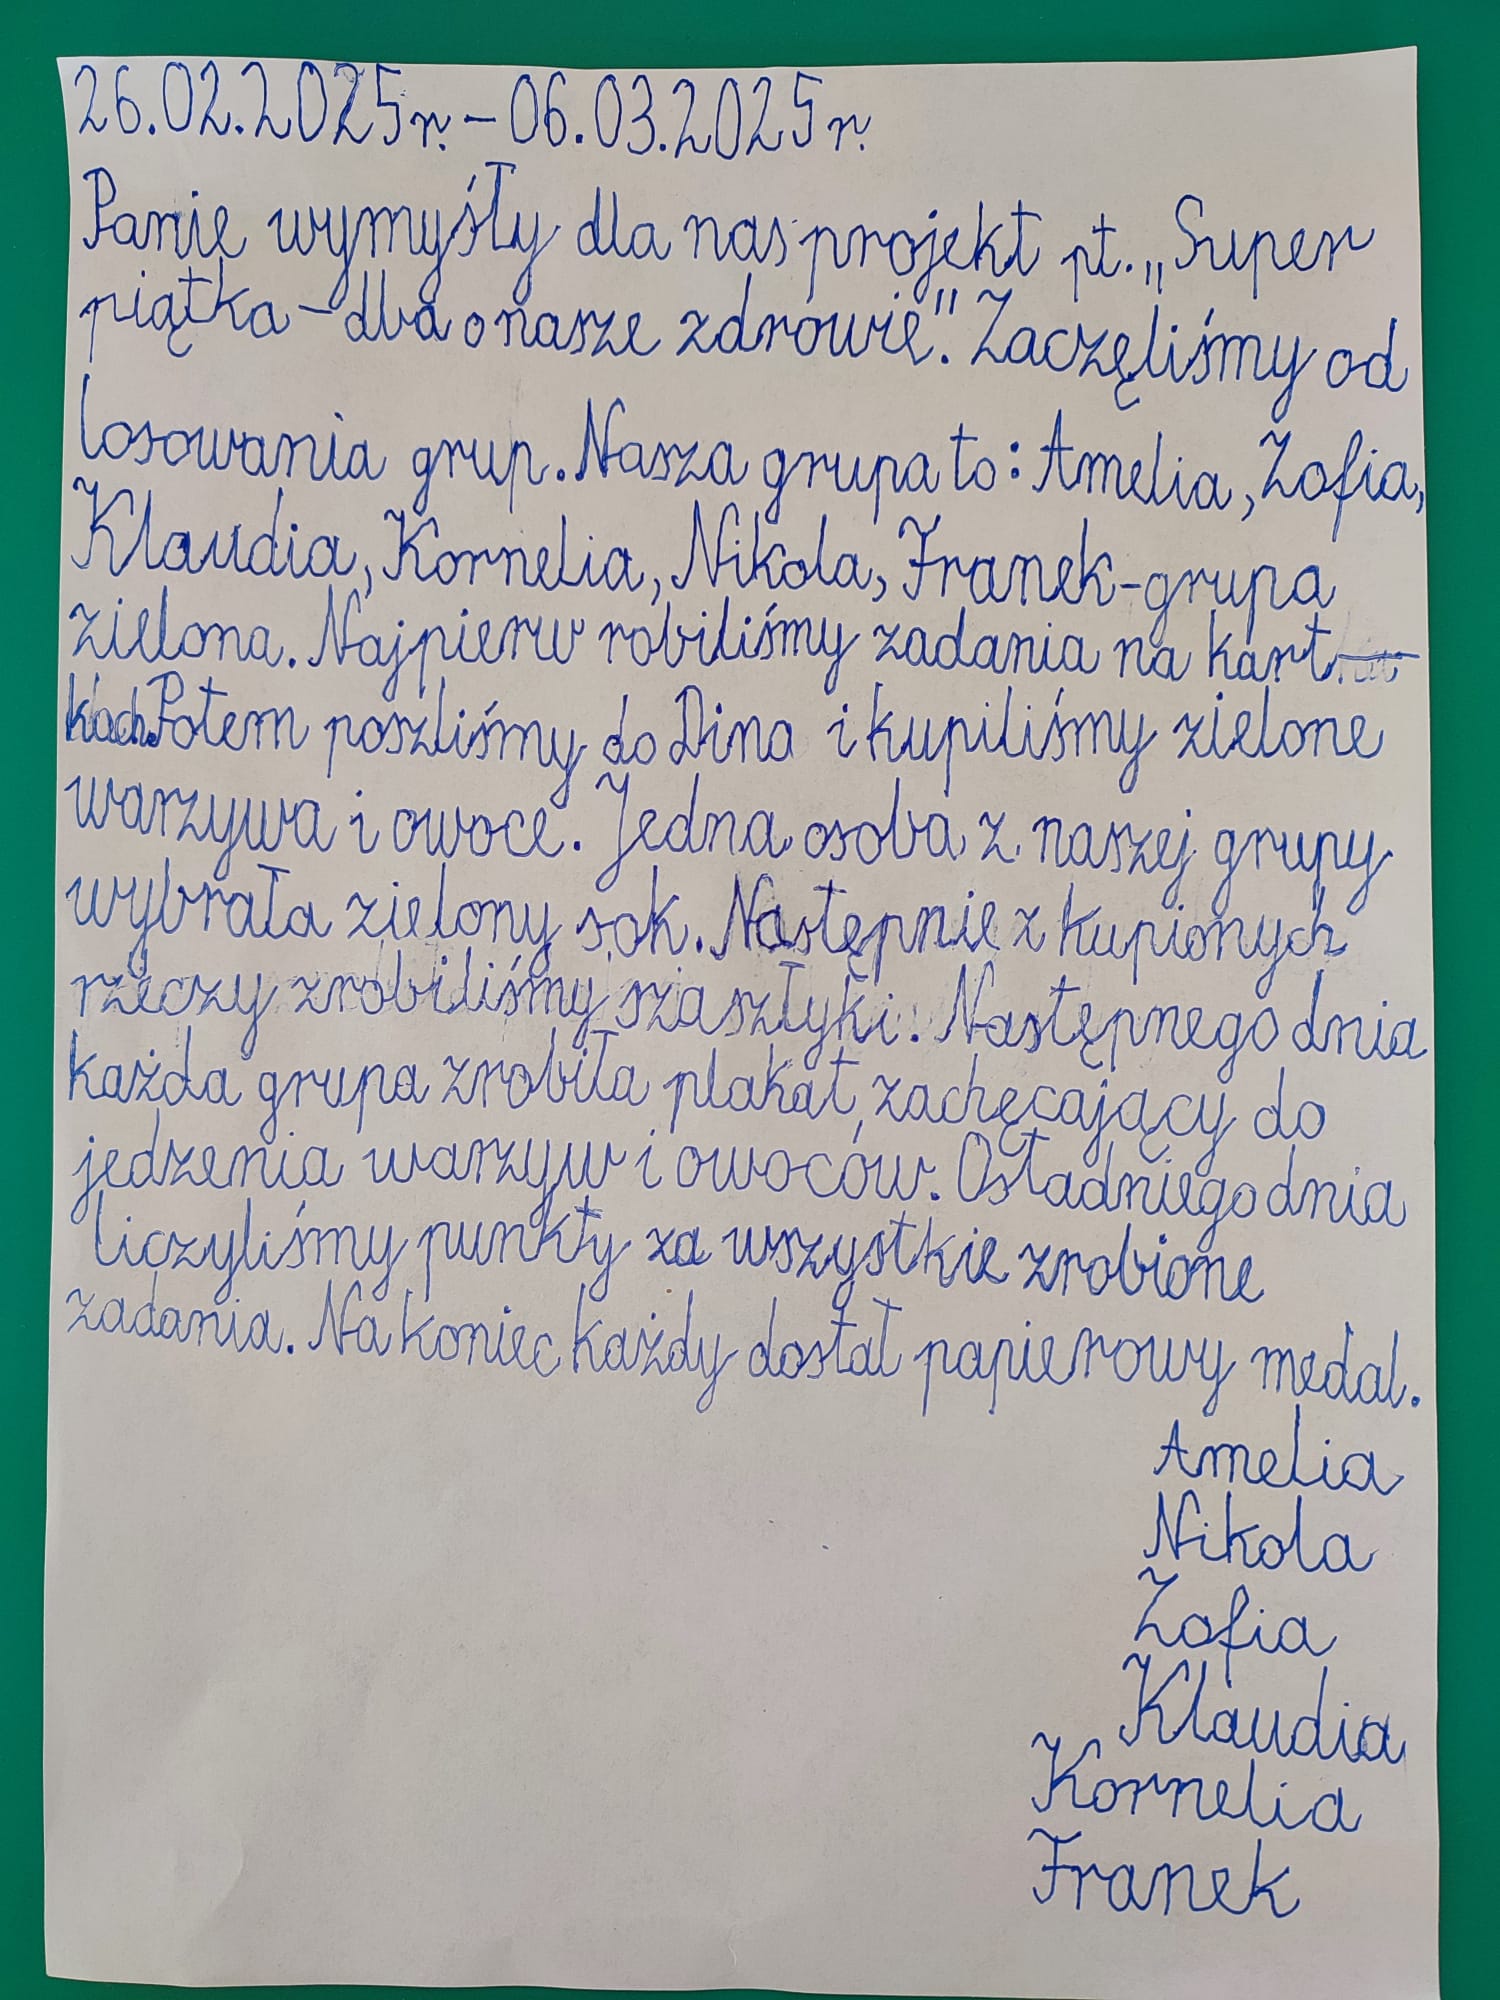 26.02.2025r. – 06.03.2025r.
Panie wymyśły dla nas projekt pt. „Super
piątka – dba o nasze zdrowie". Zaczęliśmy od
losowania grup. Nasza grupa to: Amelia, Zofia,
Klaudia, Kornelia, Nikola, Franek-grupa
zielona. Najpierw robiliśmy zadania na kart
kach. Potem poszliśmy do Dina i kupiliśmy zielone
warzywa i owoce. Jedna osoba z naszej grupy
wybrała zielony sok. Następnie z kupionych
rzeczy zrobiliśmy szaszłyki. Następnego dnia
każda grupa zrobiła plakat, zachęcający do
jedzenia warzyw i owoców. Ostadniego dnia
liczyliśmy punkty za wszystkie zrobione
zadania. Na koniec każdy dostał papierowy medal.
Amelia
Nikola
Zofia
Klaudia
Kornelia
Franek